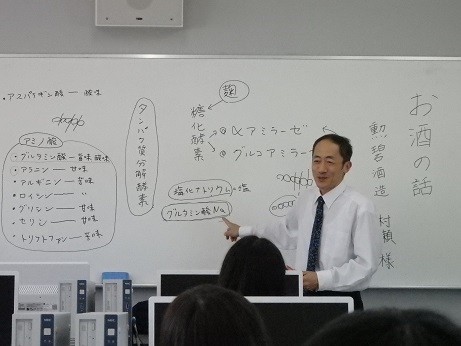 お酒の話
勲碧酒造
村瀬 様
麹
糖化酵素
αアミラーゼ
グルコアミラーゼ
塩化ナトリウム=塩
グルタミン酸Na
タンパク質分解酵素
・アスパラギン酸 ー 酸味
アミノ酸
・グルタミン酸 ー 旨味 酸味
・アラニン ー 甘味
・アルギニン ー 苦味
・ロイシン ー
・グリシン ー 甘味
・セリン ー 甘味
・トリプトファン ー 苦味